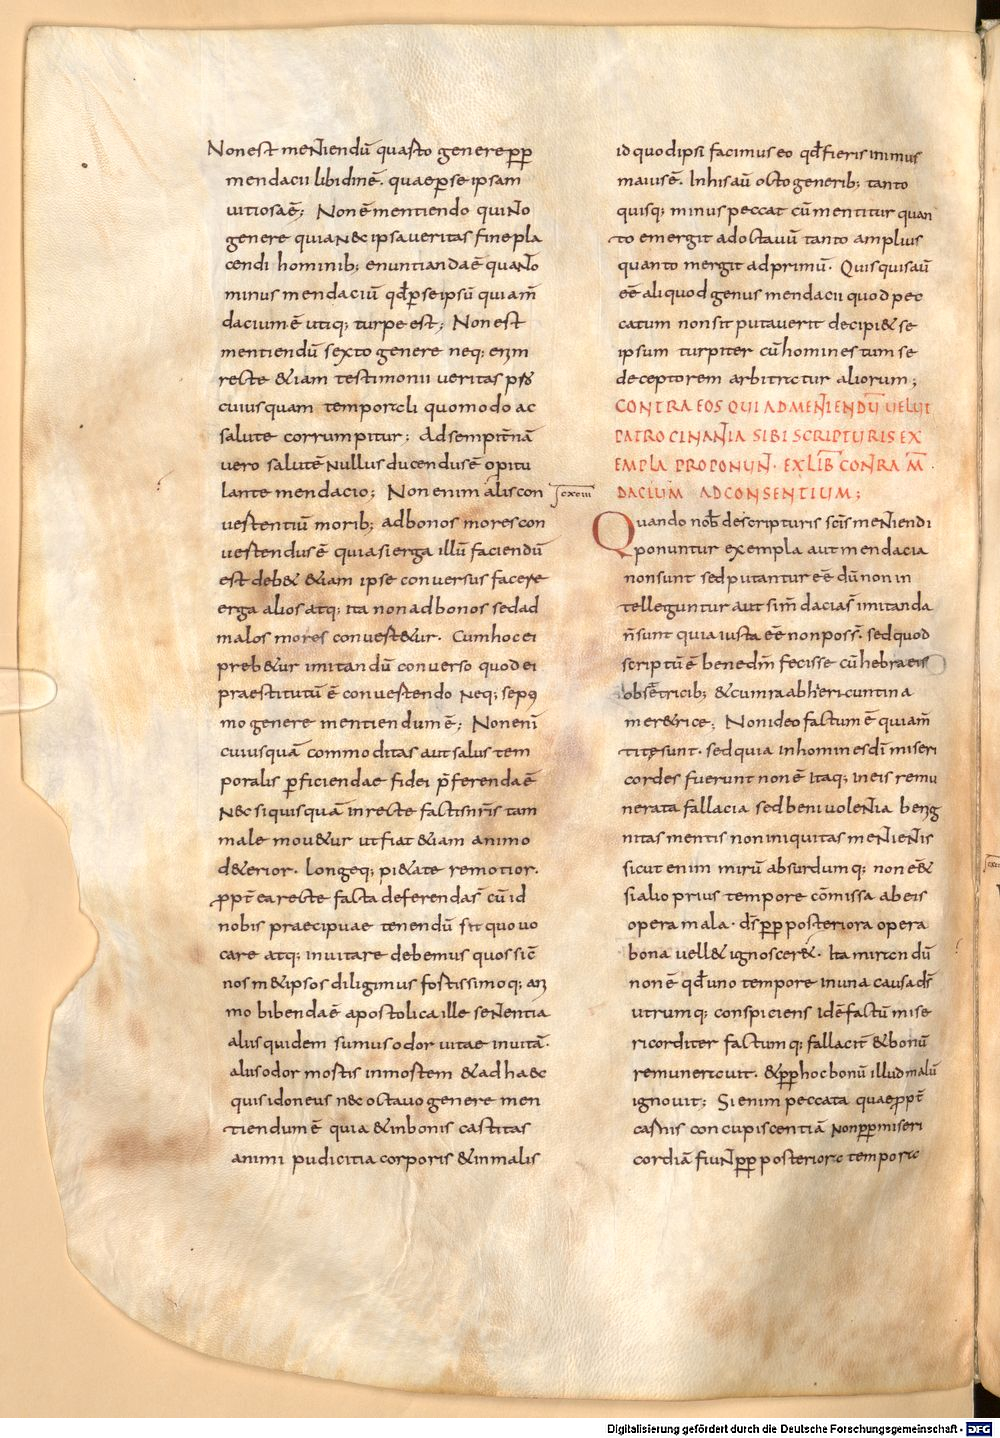 Non est mentiendū quarto genere ꝓp
mendacii libidinē. quae ꝑ se ipsam
uitiosa ē; Non ē mentiendo quinto
genere quia nec ipsa ueritas fine pla
cendi hominib; enuntianda ē quanto
minus mendaciū qđ ꝑ se ipsū quia m̄
dacium ē utiq; turpe est; Non est
mentiendū sexto genere neq; enim
recte &iam testimonii ueritas ꝓ
cuiusquam temporali quomodo ac
salute corrumpitur; Ad sempit̄nā
uero salutē nullus ducendus ē opitu
lante mendacio; Non enim malis con
uertentiū morib; ad bonos mores con
uertendus ē quia si erga illū faciendū
est deb& &iam ipse conuersus facere
erga alios atq; ita non ad bonos sed ad
malos mores conuert&ur. Cum hoc ei
preb&ur imitandū conuerso quod ei
praestitutū ē conuertendo neq; septi
mo genere mentiendum ē; Non enī
cuiusquā commoditas aut salus tem
poralis ꝑficiendae fidei p̄ferenda ē
Nec si quisquā in recte factis nr̄is tam
male mou&ur ut fiat &iam animo
d&erior. longeq; pi&ate remotior.
ꝓpt̄ ea recte facta deferenda s̄ cū id
nobis praecipuae tenendū sit quo uo
care atq; inuitare debemus quos sic̄
nos m&ipsos diligimus fortissimoq; ani
mo bibenda ē apostolica ille sententia
aliis quidem sumus odor uitae in uitā.
aliis odor mortis in mortem & ad haec
quis idoneus nec octauo genere men
tiendum ē quia & in bonis castitas
animi pudicitia corporis & in malis
id quod ipsi facimus eo qđ fieri sinimus
maius ē. In his aū octo generib; tanto
quisq; minus peccat cū mentitur quan
to emergit ad octauū tanto amplius
quanto mergit ad primū. Quisquis aū
eē aliquod genus mendacii quod pec
catum non sit putauerit decipi& se
ipsum turpiter cū homines tum se
deceptorem arbitratur aliorum;
CONTRA EOS QUI AD MENTIENDŪ UELUT
PATROCINANTIA SIBI SCRIPTURIS EX
EMPLA PROPONUNT. EX LIB̄ CONTRA M̄
DACIUM AD CONSENTIUM;
cxciii
Quando nob̄ de scripturis sc̄is mentiendi
ponuntur exempla aut mendacia
non sunt sed putantur eē dū non in
telleguntur aut si m̄dacia s̄ imitanda
n̄ sunt quia iusta eē non poss̄. sed quod
scriptū ē bene dm̄ fecisse cū hebraeis
obsetricib; & cum raab hiericuntina
mer&rice; Non ideo factum ē quia m̄
titę sunt. sed quia in homines dī miseri
cordes fuerunt non ē itaq; in eis remu
nerata fallacia sed beniuolentia benig
nitas mentis non iniquitas mentientis
sicut enim mirū absurdumq; non eē&
si alio prius tempore cōmissa ab eis
opera mala. ds̄ ꝓp posteriora opera
bona uell& ignoscer&. Ita mirandū
non ē qđ uno tempore in una causa ds̄
utrumq; conspiciens idē factū mise
ricorditer factumq; fallacit̄ & bonū
remunerauit. & ꝓp hoc bonū illud malū
ignouit; Si enim peccata quae ꝓpt̄
carnis concupiscentiā non ꝓp miseri
cordiā fiunt ꝓp posteriore tempore
Digitalisierung gefördert durch die Deutsche Forschungsgemeinschaft - DFG